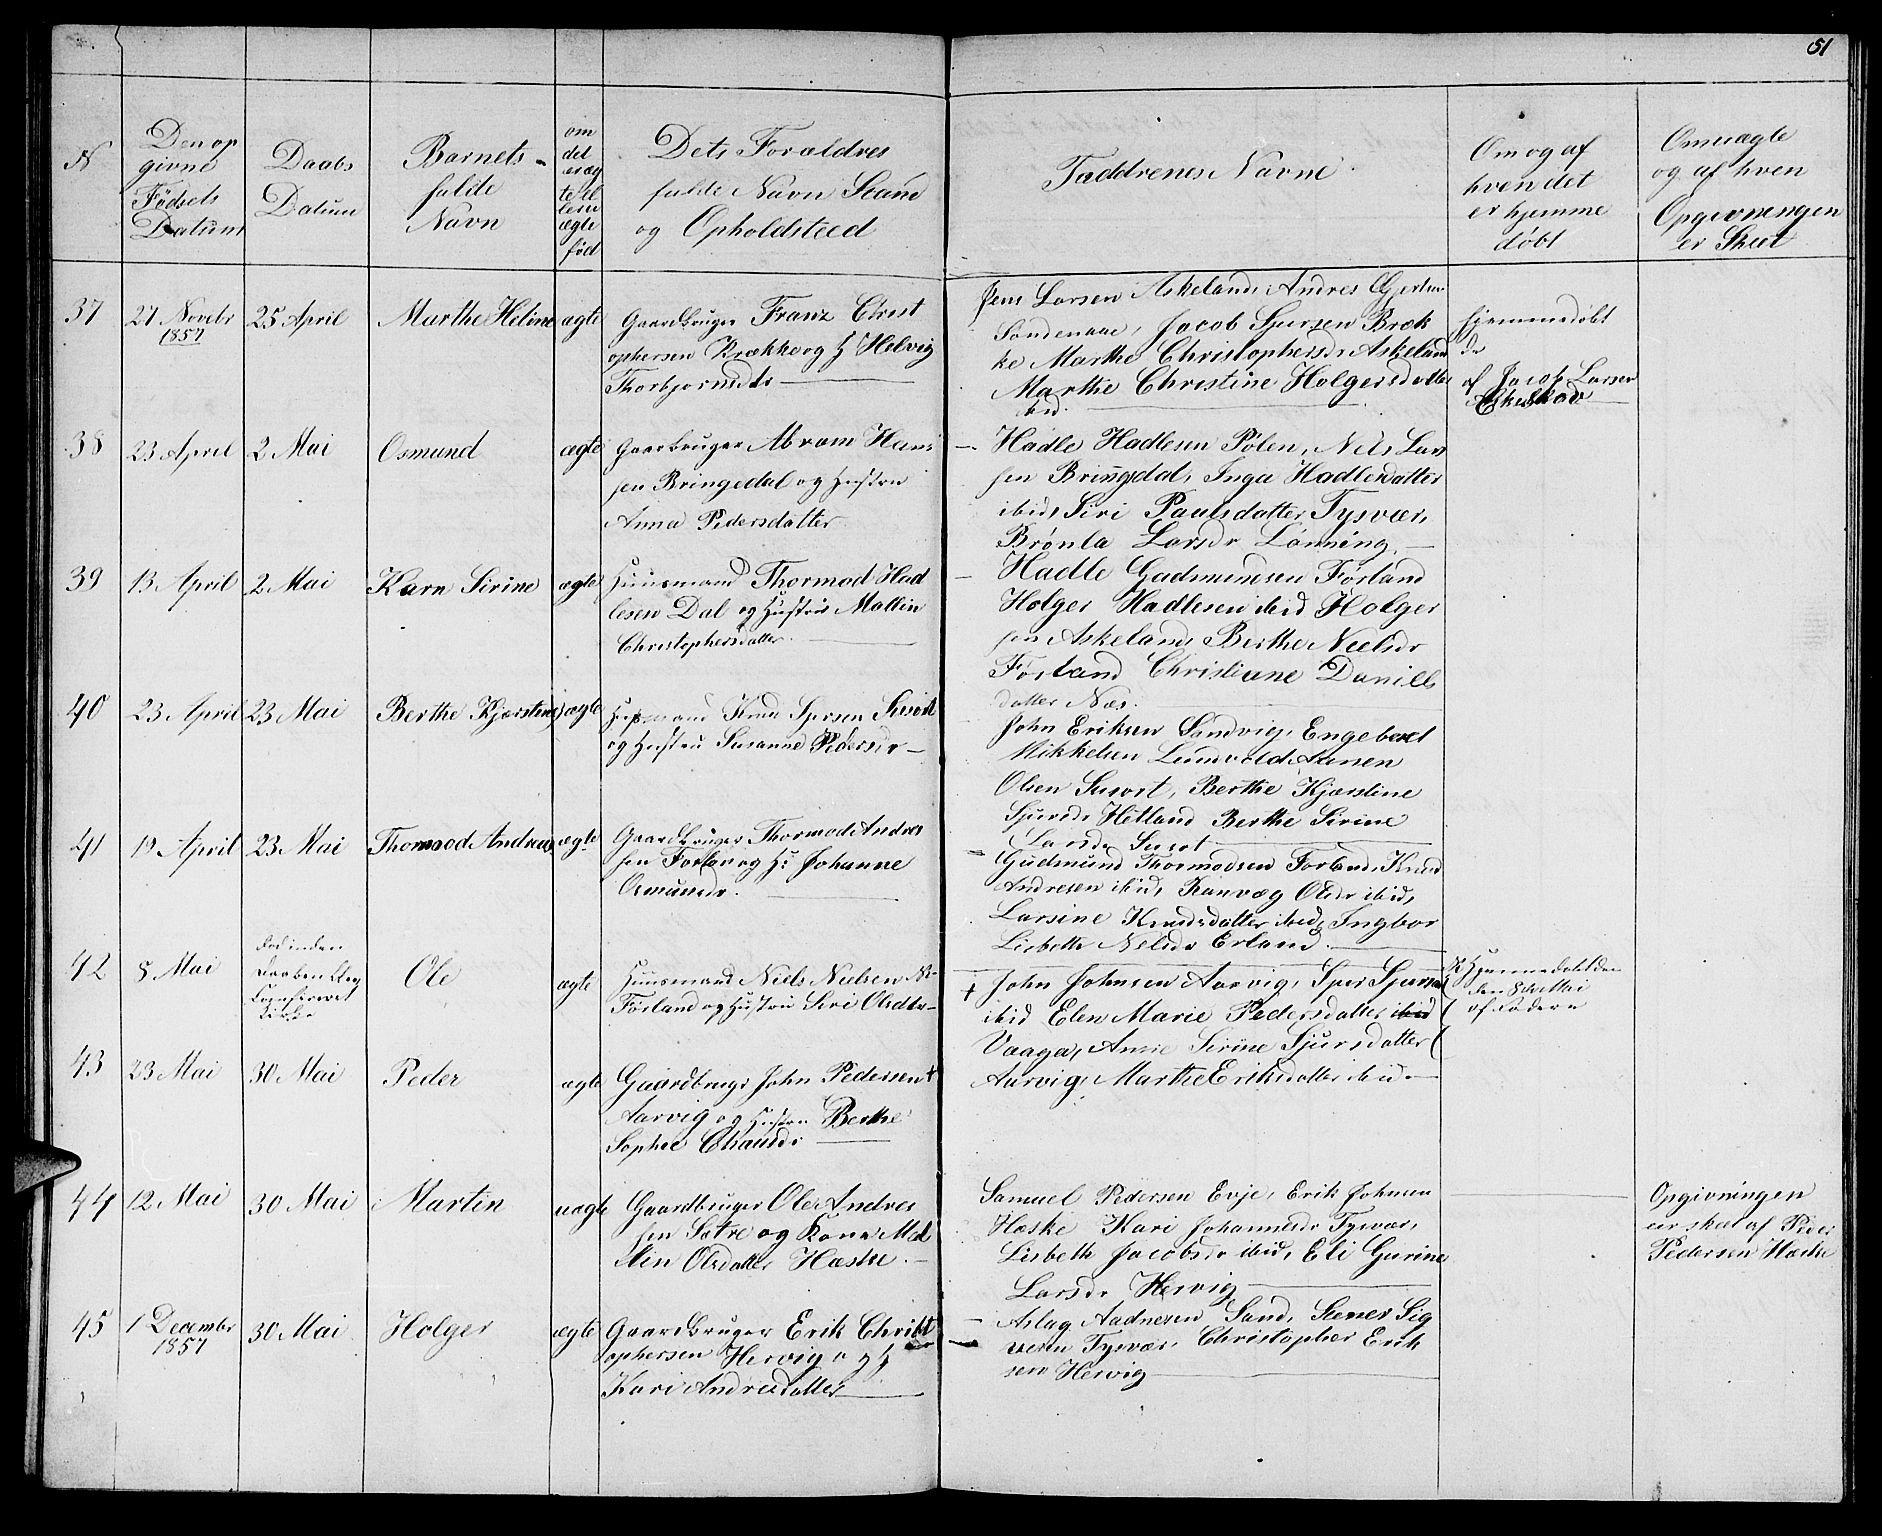 51
N
Den op
givne
Fødsels
Datum
Daabs
Datum
Barnets
fulde
Navn
om
det
er æg
te el
lern
ægte
fød
Dets Forældres
fulde Navn Stand
og Opholdsteed
Faddrenes Navne
Om og af
hven det
er hjemme
døbt
Om uægte
og af hven
Opgivningen
er Skeet
37
27 Novebr
1857
25 April
Marthe Heline
ægte
Gaardbruger Franz Christ
ophersen Krække og H Helvig
Thorbjornsdtr
Jens Larsen Askeland, Andres
Søndenaae, Jacob Sjursen Bræk
ke Marthe Christophersdr Askeland
Marthe Christine Holgersdatter
ibid.
Hjemmedøbt
af Jacob Larsen
38
23 April
2 Mai
Osmund
ægte
Gaarbruger Abram Hans
sen Bringedal og Hustru
Anna Pedersdatter
Hadle Hadlesen Pølen, Nels Lar
sen Bringdal, Inga Hadlesdatter
ibid, Siri Paulsdatter Tysvær,
Brønla Larsdr Lønning
39
13 April
2 Mai
Karn Sirine
ægte
Huusmand Thormod Had
lesen Dal og Hustru Mallin
Christophersdatter
Hadle Gudmundsen Førland
Holger Hadlesen ibid Holger
sen Askeland, Berthe Neelsdr
Førland Christiane Daniels
datter Næs.
40
23 April
23 Mai
Berthe Kjærstine
ægte
Husmand Knud Sjursen Susort
og Hustru Susanne Pedersdr
John Eriksen Sandvig, Engebret
Mikkelsen Lundvold Annen
Olsen Susort, Berthe Kjærstine
Sjursdr Hetland Berthe Sirine
Larsdr Susort
41
19 April
23 Mai
Thormod Andreas
ægte
Gaardbruger Thormod Andres
sen Forlan og H: Johanne
Osmundsdr.
Gudmund Thormodsen Forland, Knud
Andresen ibid, Ranvæg Olsdr ibid,
Larsine Knudsdatter ibid, Ingbor
Lisbethe Nelsdr Erland
42
8 Mai
Død inden
Daaben blev
Confirmet
Kirke
Ole
ægte
Huusmand Niels Nielsen N-
Førland og Hustru Siri Olsdtr
Hjemmedøbt den
den 8de Mai
af Faderen
43
23 Mai
30 Mai
Peder
ægte
Gaardbrugr John Pedersen +
Aarvig og Hustru Berthe
Sophie Clausdr
+ John Johnsen Aarvig, Sjur Sjursen
ibid Elen Marie Pedersdatter ibid
Vaaga, Anne Sirine Sjursdatter
Aarvig, Marthe Eriksdatter ibid
44
12 Mai
30 Mai
Martin
uægte
Gaardbruger Ole Andres
sen Sætre og Kone Mal
lin Olsdatter Hæske
Samuel Pedersen Evje, Erik Johnsen
Hæske Kari Johannesdr Tysvær,
Lisbeth Jacobsdr ibid, Eli Gurine
Larsdr Hervig
Opgivningen
er skeet af Peder
Pedersen Hæske
45
1 Decembr
1857
30 Mai
Holger
ægte
Gaardbruger Erik Christ
ophersen Hervig og H
Kari Andresdatter
Aslag Aadnesen Sand, Stener Sig
vern Tysvær, Christopher Erik
sen Hervig